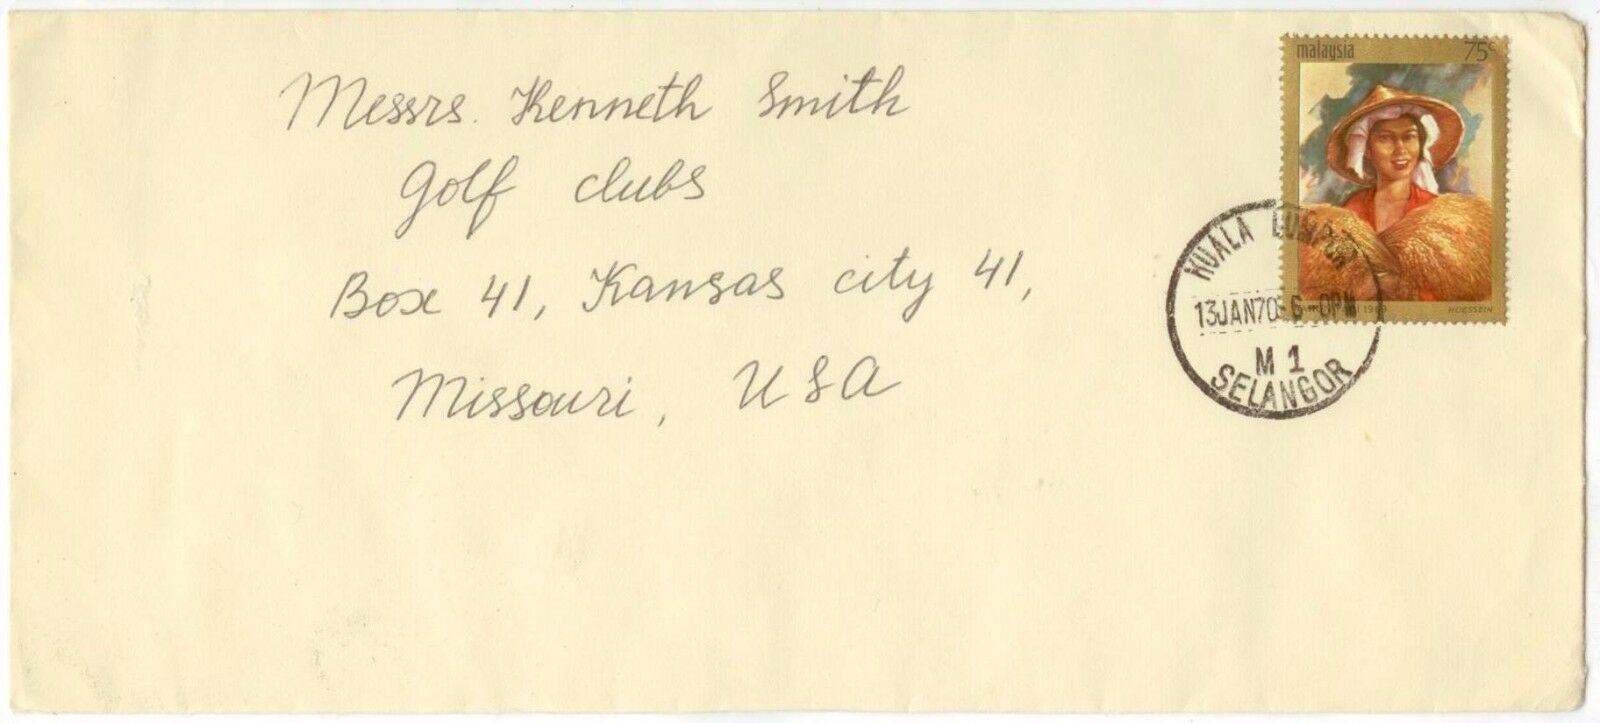 malaysia 75c
Messrs. Kenneth Smith
Golf clubs
Box 41, Kansas city 41,
Missouri, USA
KUALA LUMPUR
13JAN70-6-0PM
M 1
SELANGOR
HOESSEIN